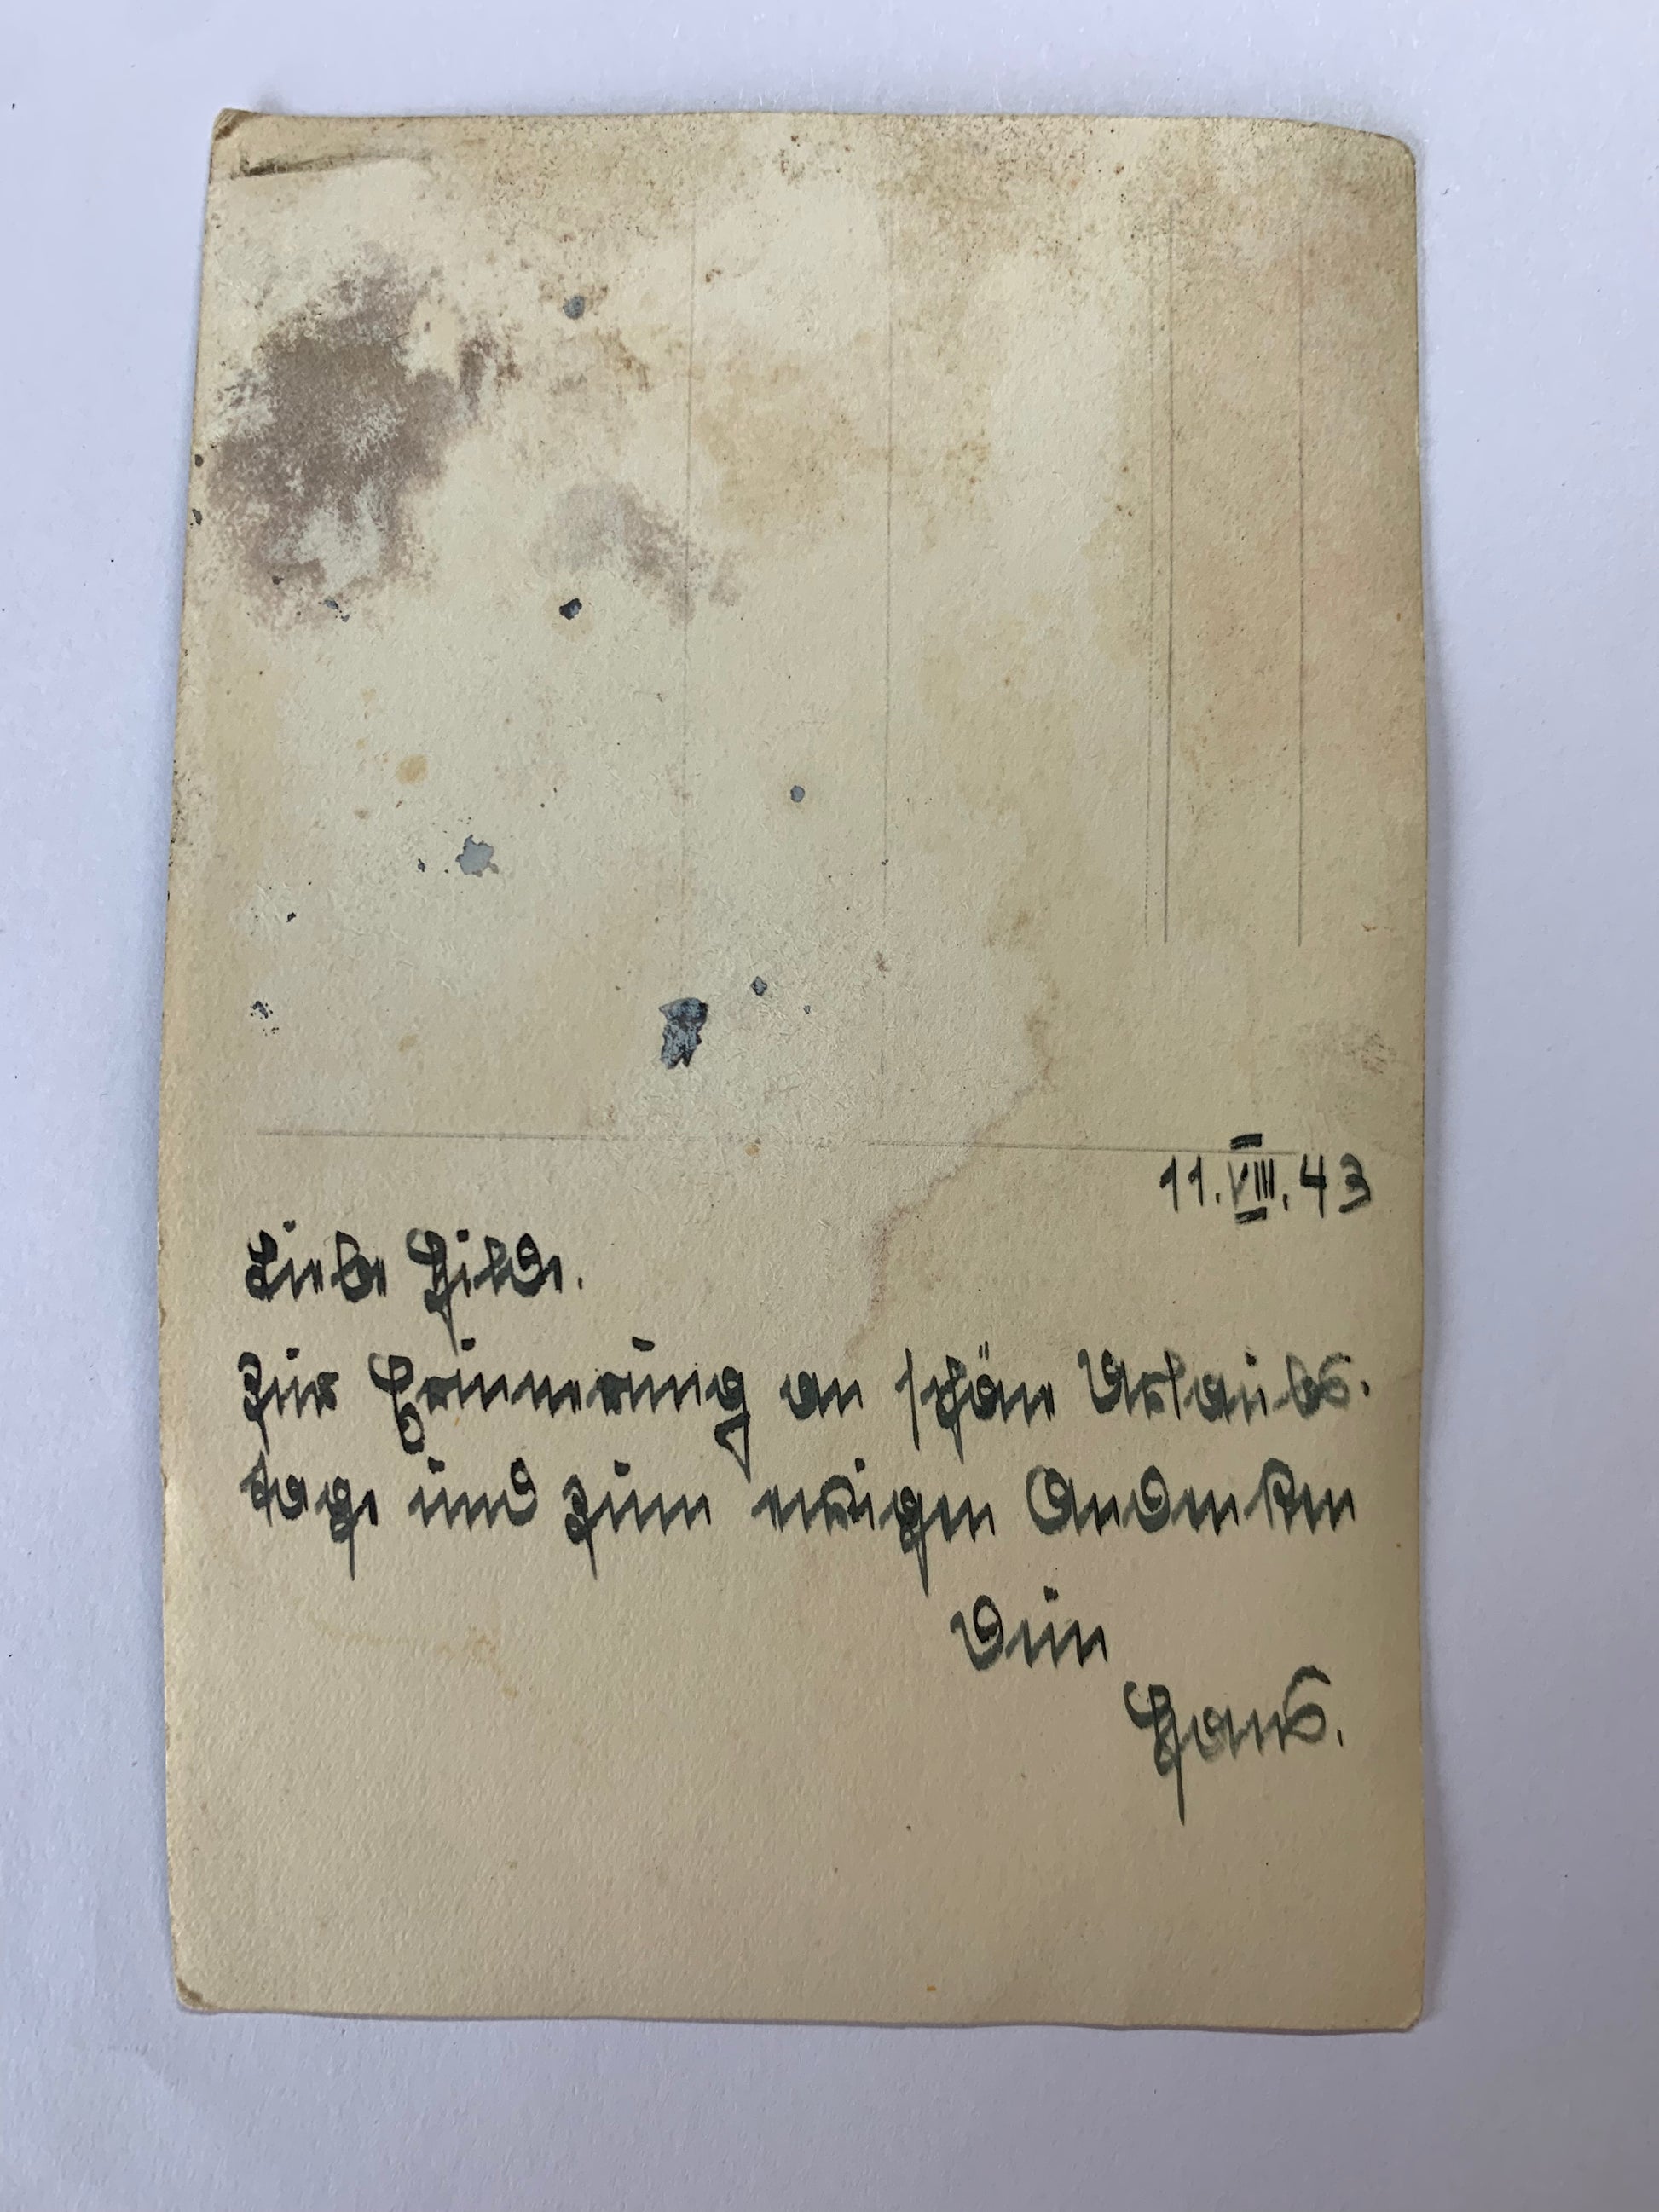 11.VIII.43
Liebe Hilde.
Zur Erinnerung an schöne Urlaubs-
tage und zum ewigen Andenken
Dein
Hans.